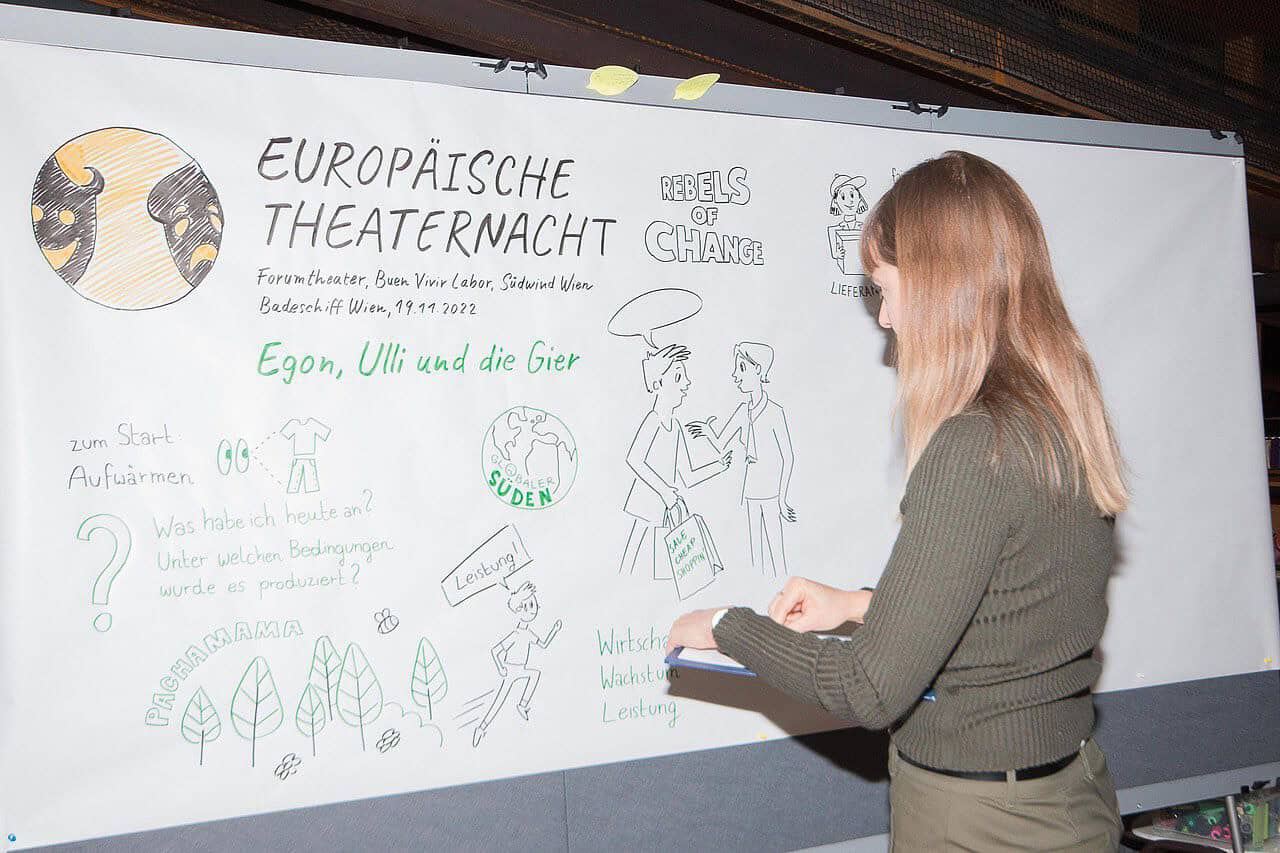 EUROPÄISCHE
THEATERNACHT
Forumtheater, Buen Vivir Labor, Südwind Wien
Badeschiff Wien, 19.11.2022
Egon, Ulli und die Gier
REBELS
OF
CHANGE
zum Start:
Aufwärmen
Was habe ich heute an?
Unter welchen Bedingungen
wurde es produziert?
?
GLOBALER
SÜDEN
SALE
CHEAP
SHOPPIN
Leistung!
PACHAMAMA
Wachstum
Leistung